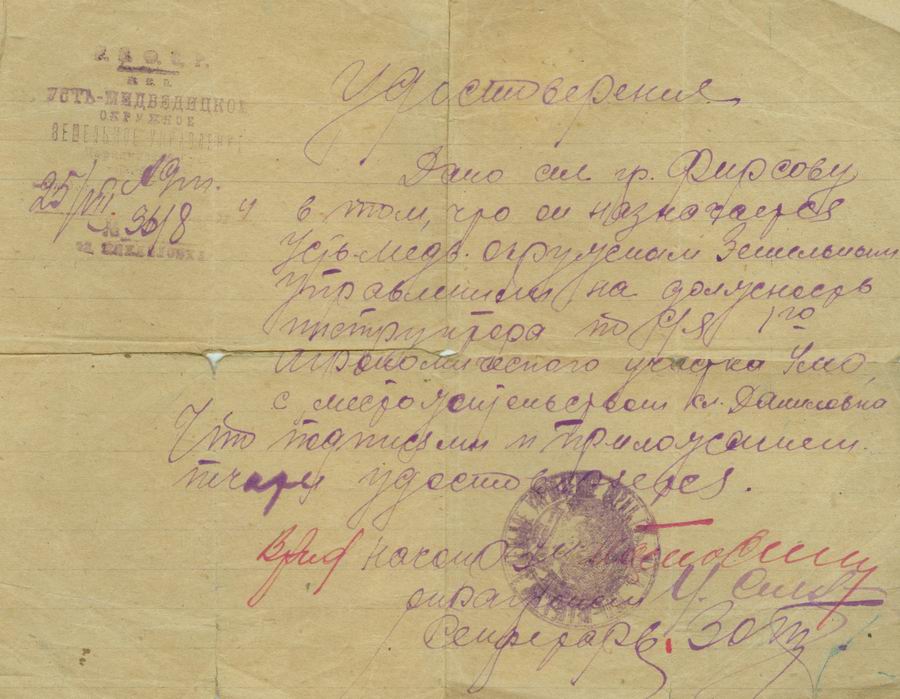 Р. С. Ф. С. Р.
УСТЬ-МЕДВЕДИЦКОЕ
ОКРУЖНОЕ
ЗЕМЕЛЬНОЕ УПРАВЛЕНИЕ
25/VIII
№ 3618
Удостоверение
Дано сие гр. Фирсову
в том, что он назначается
Усть-медв. окружным Земельным
Управлением на должность
инструктора по с/х 1го
Агрономического участка Умо,
с местожительством сл. Даниловка
Что подписями и приложением
печати удостоверяется.
Врид
Секретарь